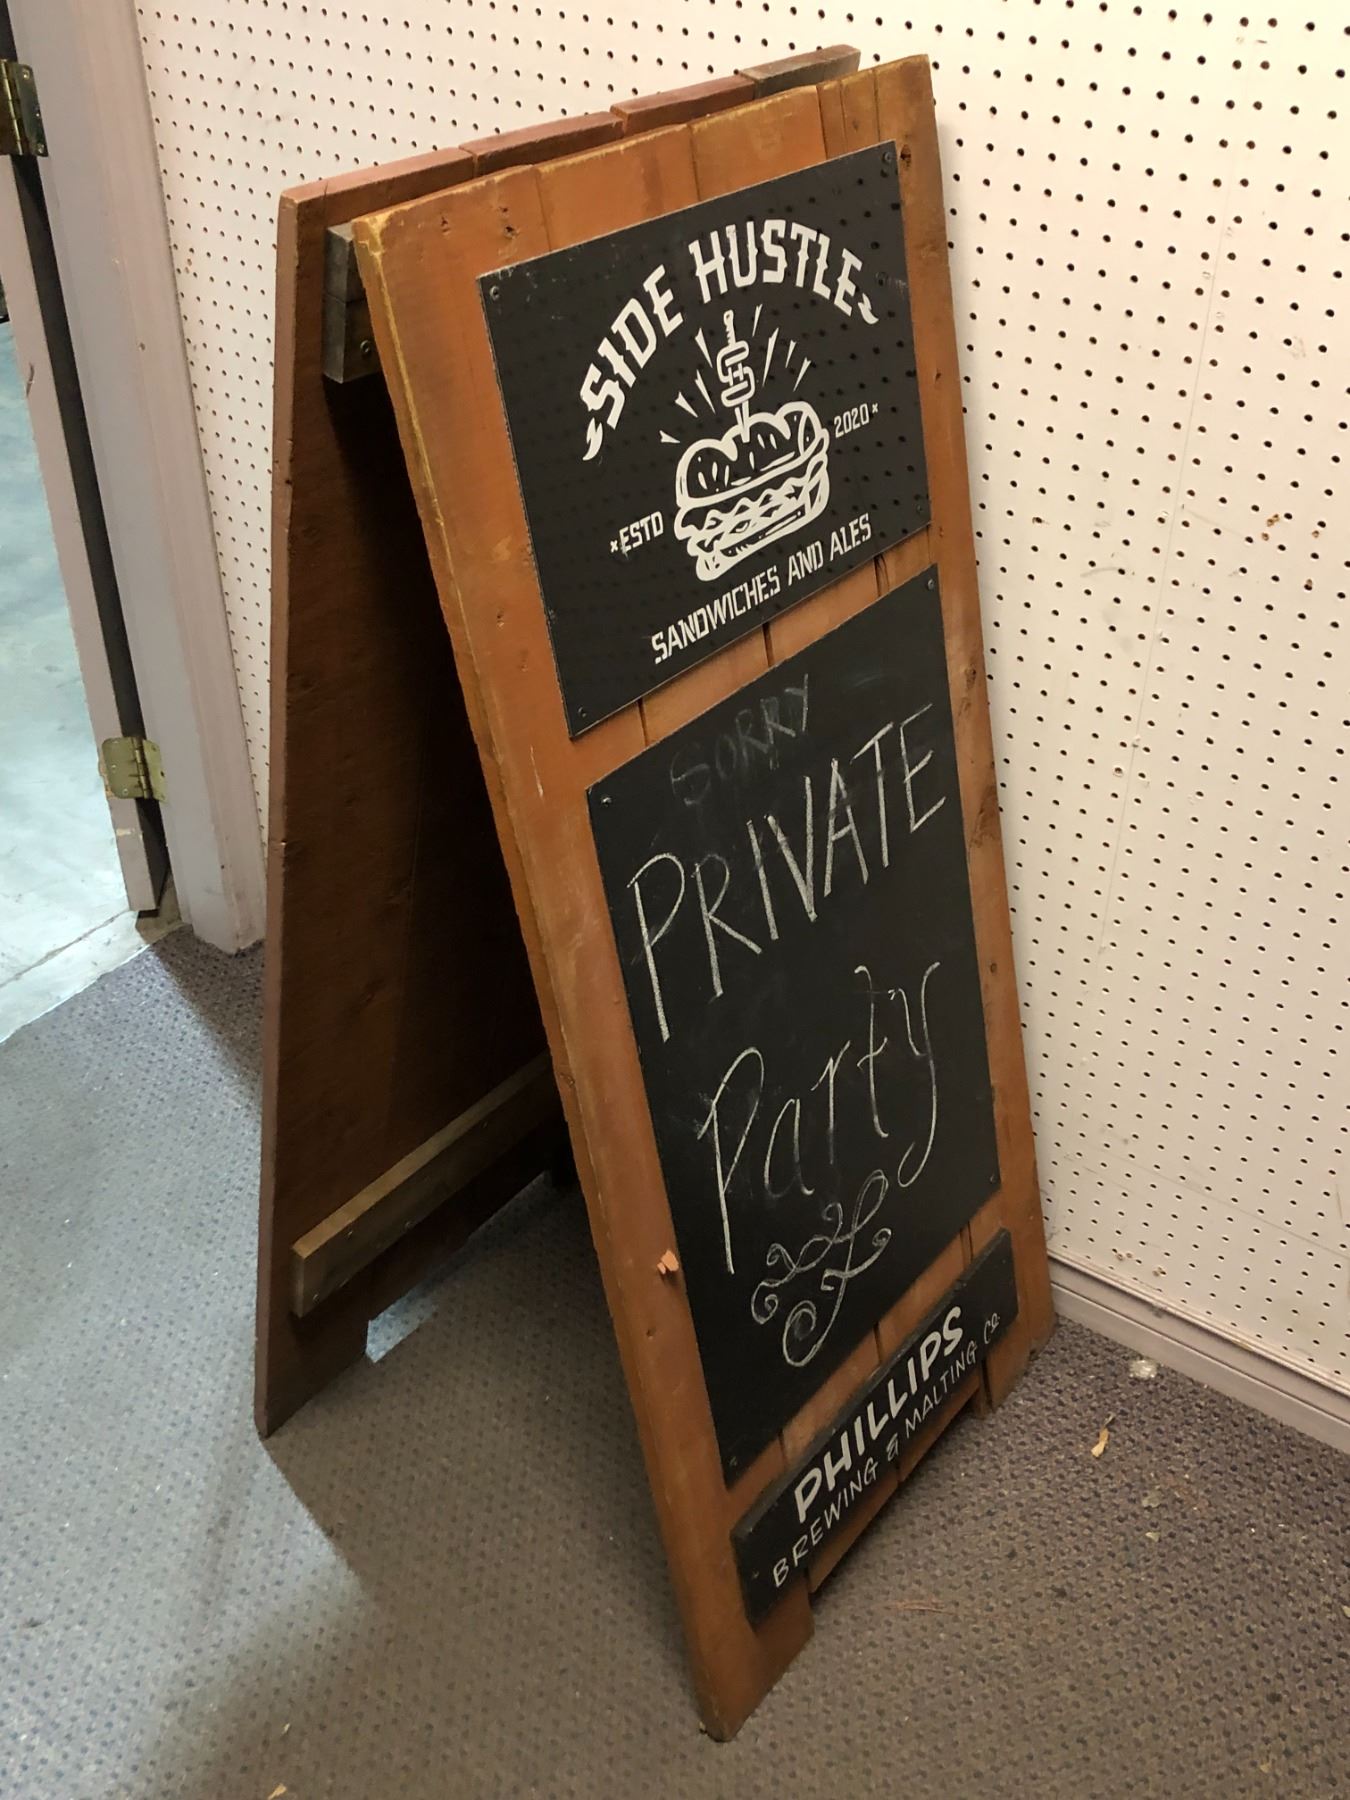 SIDE HUSTLE
SH
ESTD 2020
SANDWICHES AND ALES
SORRY
PRIVATE
Party
PHILLIPS
BREWING & MALTING CO